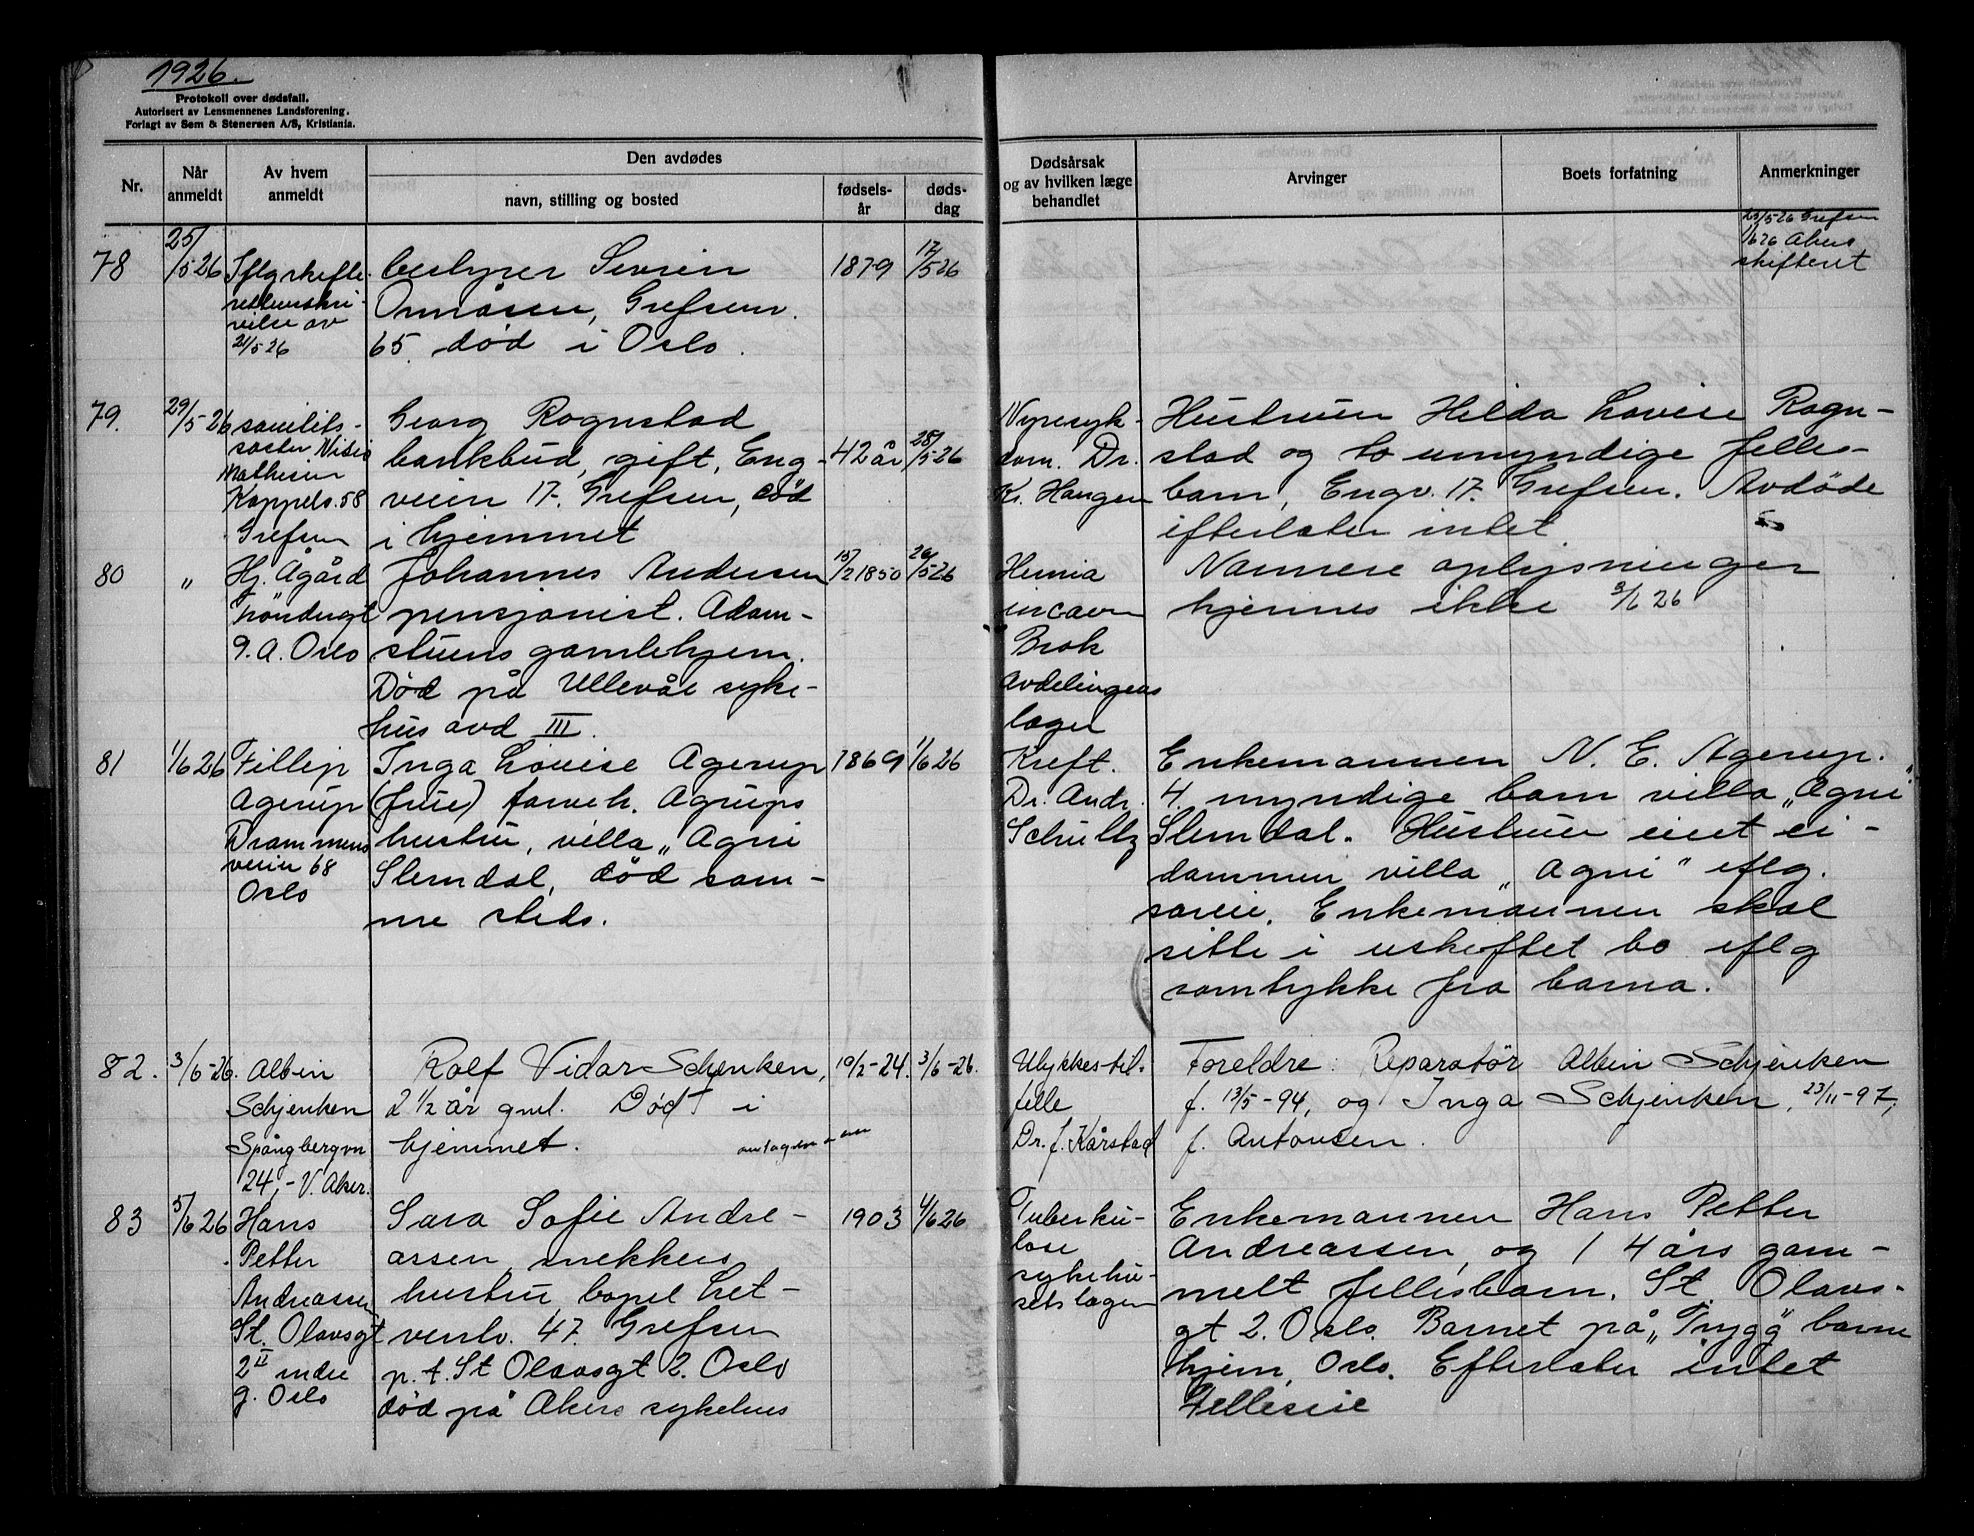 1926.
Protokoll over dødsfall.
Autorisert av Lensmennenes Landsforening.
Forlagt av Sem & Stenersen A/S, Kristiania.
Nr.
Når anmeldt
Av hvem anmeldt
Den avdødes
navn, stilling og bosted
fødsels-år
døds-dag
Dødsårsak og av hvilken læge behandlet
Arvinger
Boets forfatning
Anmerkninger
78
25/5 26
Iflg skifte-
rettens skri-
velse av
21/5 26
bestyrer
Grefsen.
65. død i Oslo.
1879
17/5 26
25/5 26 Grefsen
1/6 26 Akers
skifteret
79.
29/5-26
samlits-
søster
Mathisen
Kappels. 58
Grefsen
Georg Rognstad
bankbud, gift, Eng-
veien 17. Grefsen, død
i hjemmet
42 år
25/5-26
Nyresyk-
dom. Dr.
Kr. Haugen
Hustruen Hilda Lovise Rogn-
stad og to umyndige felles-
barn, Engv. 17. Grefsen. Avdøde
efterlater intet
80
"
Hj. Ågård
Trondergt
9. A. Oslo
Johannes Andersen
pensjonist. Adam-
stuens gamlehjem.
Død på Ullevål syke-
hus avd III.
15/2 1850
26/5 26
Hernia
incarn
Brok
Avdelingens
læger
Nærmere oplysninger
kjennes ikke 3/6 26
81
1/6 26
Fillip
Agerup
Drammens
veien 68
Oslo
Inga Lovise Agerup
(frue) farveh. Agrups
hustru, villa „Agni
Slemdal, død sam-
me steds.
1869
1/6 26
Kreft.
Dr. Andr.
Schultz
Enkemannen N. E. Agerup.
4 myndige barn villa „Agni"
Slemdal. Hustruen eiet ei-
dommen villa „Agni" iflg.
særeie. Enkemannen skal
sitte i uskiftet bo iflg
samtykke fra barna.
82.
3/6-26.
Albin
Schjenken
Spångbergvn
24,- V. Aker.
Rolf Vidar Schenken,
2 1/2 år gml. Død i
hjemmet.
19/2-24.
3/6-26.
Ulykkestil-
felle
Dr. J. Kårstad
Foreldre: Reparatør Albin Schjenken
f. 13/5-94, og Inga Schjenken, 23/11-97,
f. Antonsen.
83
5/6 26
Hans
Petter
Andreassen
St. Olavsgt
2 II indre
g. Oslo
Sara Sofie Andre-
assen, snekkers
hustru bopel Set-
renv. 47 Grefsen
p. t. St Olavsgt 2. Oslo
død på Akers sykehus
1903
4/6 26
Tuberku-
lose
sykehu-
sets lægen
Enkemannen Hans Petter
Andreassen, og 1 4 års gam-
melt fellesbarn. St. Olavs-
gt 2. Oslo. Barnet på „Trygg" barne
hjem, Oslo. Efterlater intet
Felleseie